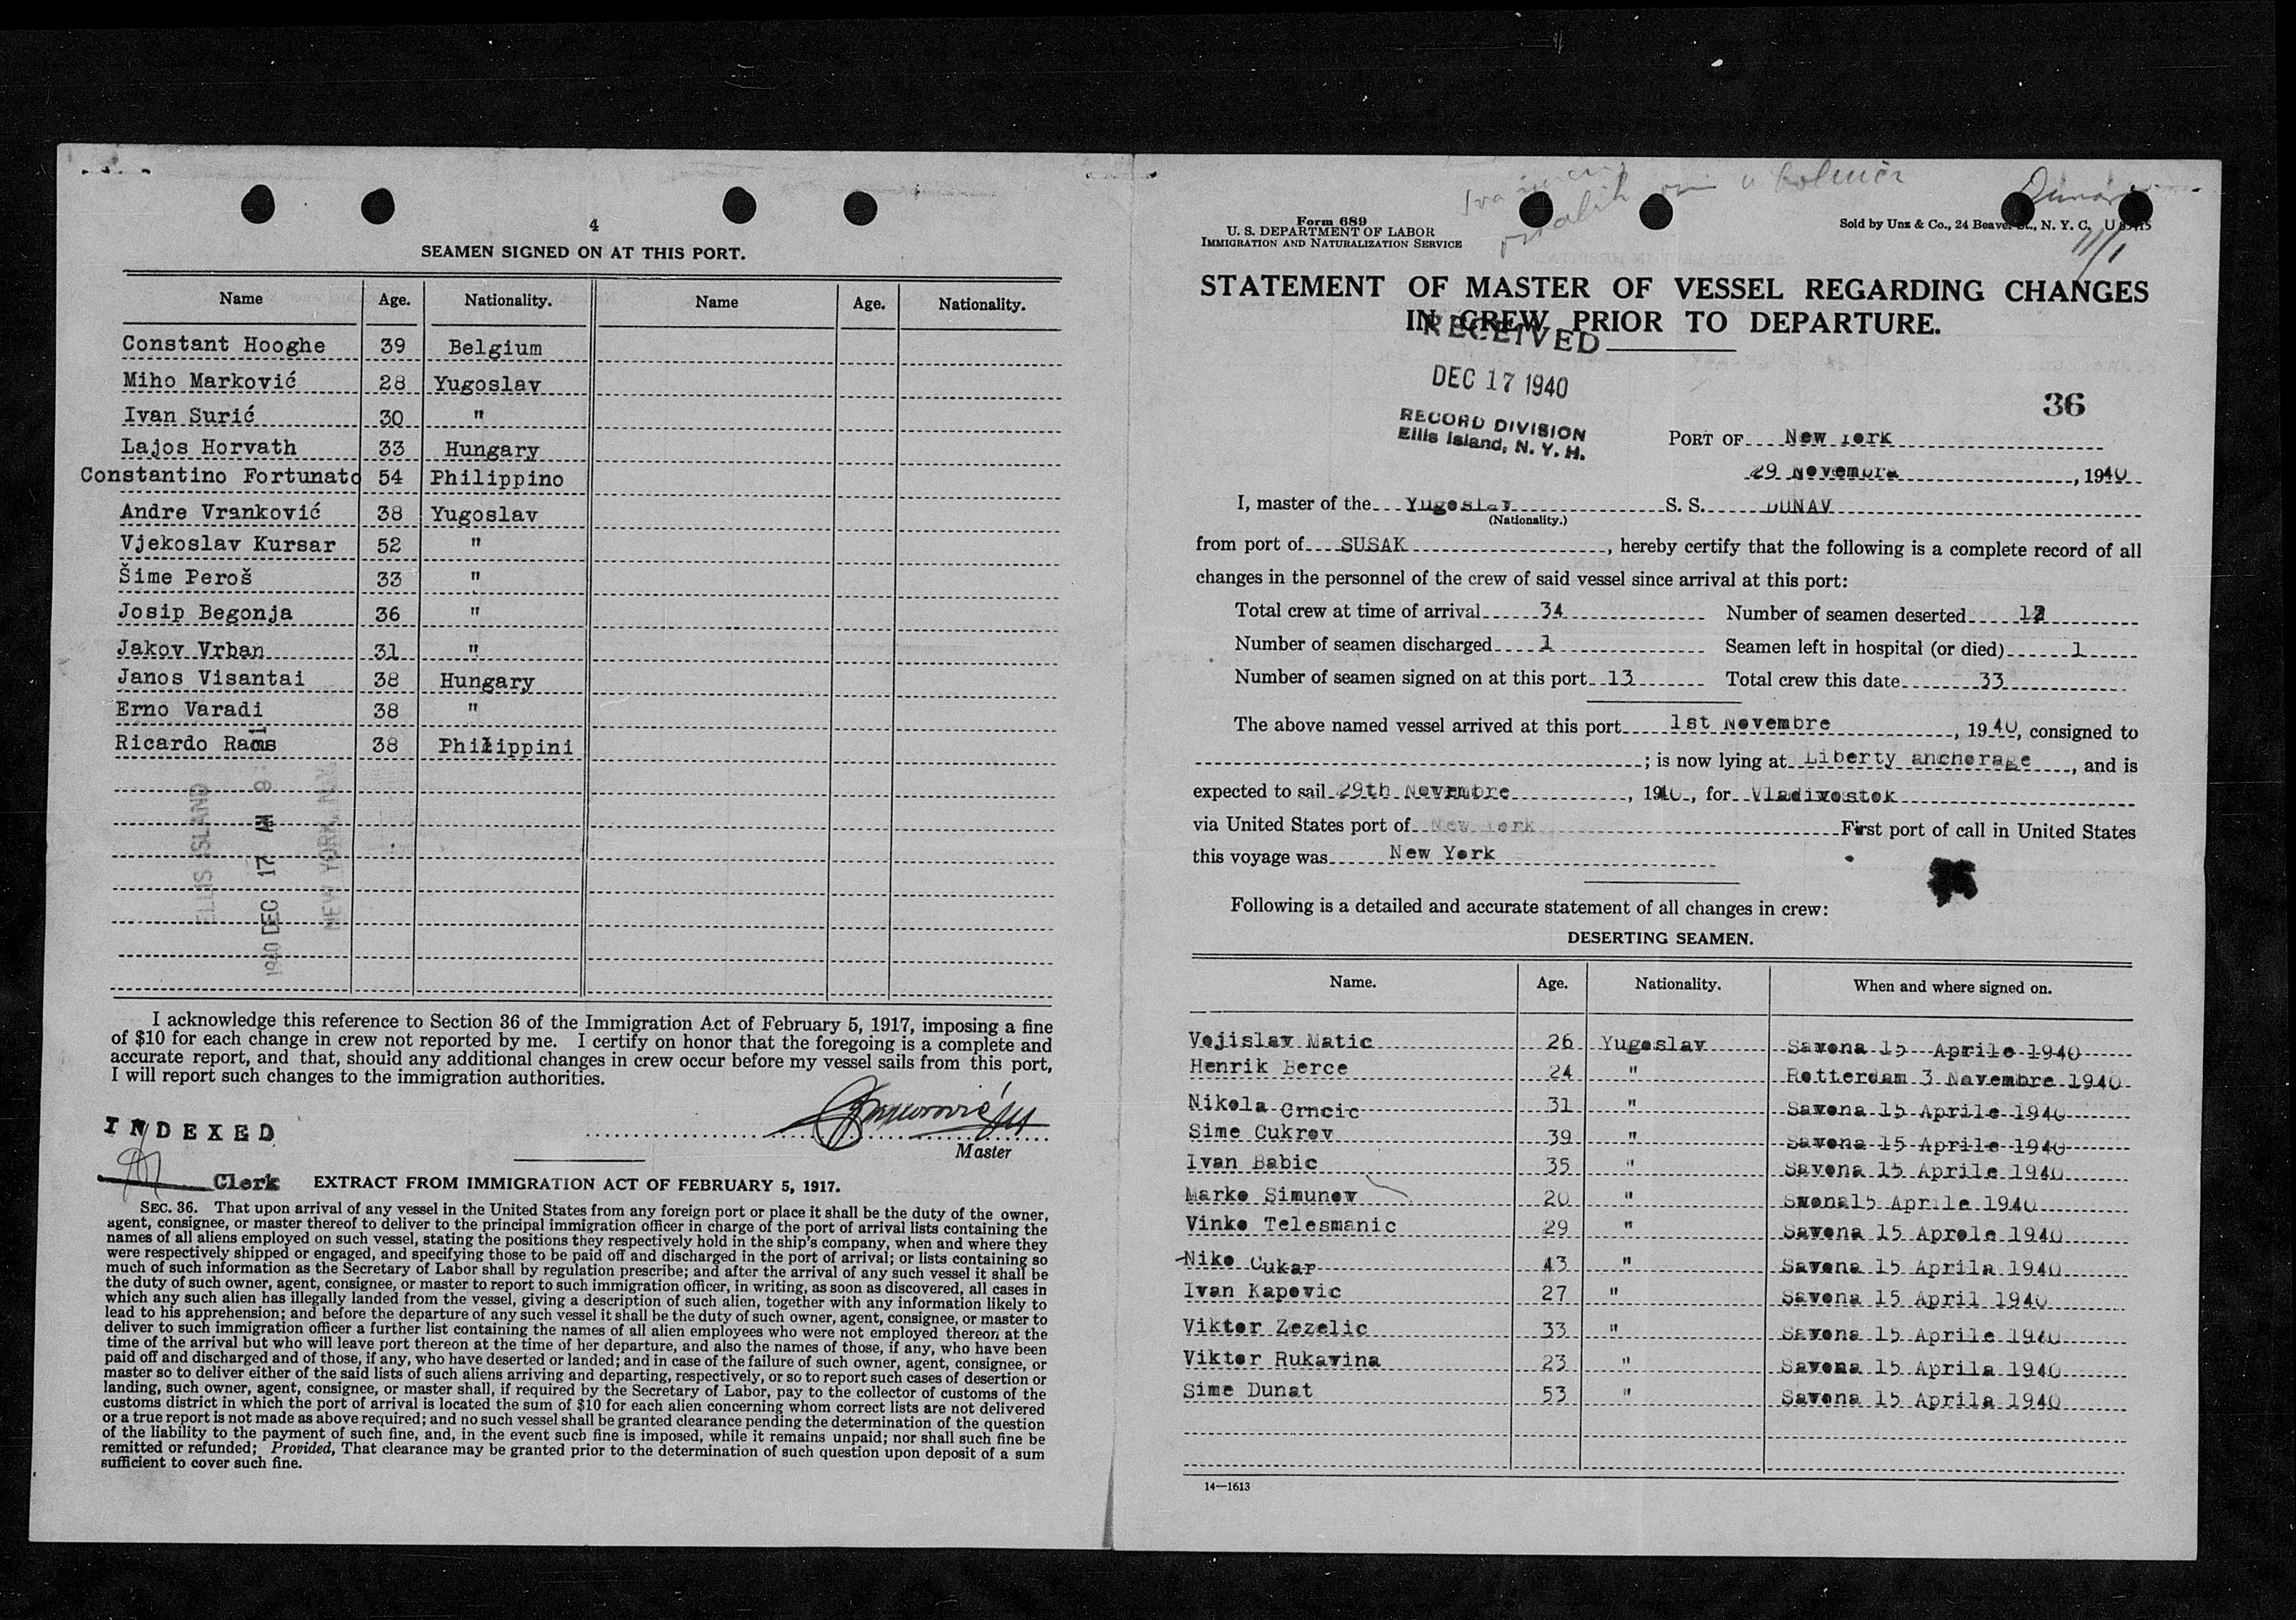 4
SEAMEN SIGNED ON AT THIS PORT.
Name Age. Nationality. Name Age. Nationality.
Constant Hooghe 39 Belgium
Miho Marković 28 Yugoslav
Ivan Surić 30 "
Lajos Horvath 33 Hungary
Constantino Fortunato 54 Philippino
Andre Vranković 38 Yugoslav
Vjekoslav Kursar 52 "
Šime Peroš 33 "
Josip Begonja 36 "
Jakov Vrban 31 "
Janos Visantai 38 Hungary
Erno Varadi 38 "
Ricardo 38 Philippini
ELLIS ISLAND
1940 DEC 17 AM 9
NEW YORK, N.Y.
I acknowledge this reference to Section 36 of the Immigration Act of February 5, 1917, imposing a fine
of $10 for each change in crew not reported by me. I certify on honor that the foregoing is a complete and
accurate report, and that, should any additional changes in crew occur before my vessel sails from this port,
I will report such changes to the immigration authorities.
INDEXED
Master
Clerk
EXTRACT FROM IMMIGRATION ACT OF FEBRUARY 5, 1917.
SEC. 36. That upon arrival of any vessel in the United States from any foreign port or place it shall be the duty of the owner,
agent, consignee, or master thereof to deliver to the principal immigration officer in charge of the port of arrival lists containing the
names of all aliens employed on such vessel, stating the positions they respectively hold in the ship's company, when and where they
were respectively shipped or engaged, and specifying those to be paid off and discharged in the port of arrival; or lists containing so
much of such information as the Secretary of Labor shall by regulation prescribe; and after the arrival of any such vessel it shall be
the duty of such owner, agent, consignee, or master to report to such immigration officer, in writing, as soon as discovered, all cases in
which any such alien has illegally landed from the vessel, giving a description of such alien, together with any information likely to
lead to his apprehension; and before the departure of any such vessel it shall be the duty of such owner, agent, consignee, or master to
deliver to such immigration officer a further list containing the names of all alien employees who were not employed thereon at the
time of the arrival but who will leave port thereon at the time of her departure, and also the names of those, if any, who have been
paid off and discharged and of those, if any, who have deserted or landed; and in case of the failure of such owner, agent, consignee, or
master so to deliver either of the said lists of such aliens arriving and departing, respectively, or so to report such cases of desertion or
landing, such owner, agent, consignee, or master shall, if required by the Secretary of Labor, pay to the collector of customs of the
customs district in which the port of arrival is located the sum of $10 for each alien concerning whom correct lists are not delivered
or a true report is not made as above required; and no such vessel shall be granted clearance pending the determination of the question
of the liability to the payment of such fine, and, in the event such fine is imposed, while it remains unpaid; nor shall such fine be
remitted or refunded; Provided, That clearance may be granted prior to the determination of such question upon deposit of a sum
sufficient to cover such fine.
Dunav
Form 689
U. S. DEPARTMENT OF LABOR
IMMIGRATION AND NATURALIZATION SERVICE
Sold by Unz & Co., 24 Beaver St., N. Y. C.
STATEMENT OF MASTER OF VESSEL REGARDING CHANGES
IN CREW PRIOR TO DEPARTURE.
RECEIVED
DEC 17 1940
RECORD DIVISION
Ellis Island, N. Y. H.
36
PORT OF New York
29 Novembre, 1940
I, master of the Yugoslav S. S. DUNAV
(Nationality.)
from port of SUSAK, hereby certify that the following is a complete record of all
changes in the personnel of the crew of said vessel since arrival at this port:
Total crew at time of arrival 34 Number of seamen deserted 12
Number of seamen discharged 1 Seamen left in hospital (or died) 1
Number of seamen signed on at this port 13 Total crew this date 33
The above named vessel arrived at this port 1st Novembre, 1940, consigned to
; is now lying at Liberty anchorage, and is
expected to sail 29th Novembre, 1940, for Vladivostok
via United States port of New York First port of call in United States
this voyage was New York
Following is a detailed and accurate statement of all changes in crew:
DESERTING SEAMEN.
Name. Age. Nationality. When and where signed on.
Vojislav Matic 26 Yugoslav Savona 15 Aprile 1940
Henrik Berce 24 " Rotterdam 3 Navembre 1940
Nikola Crncic 31 " Savona 15 Aprile 1940
Sime Cukrov 39 " Savona 15 Aprile 1940
Ivan Babic 35 " Savona 15 Aprile 1940
Marko Simunov 20 " Swona15 Aprile 1940
Vinko Telesmanic 29 " Savona 15 Aprole 1940
Niko Cukar 43 " Savona 15 Aprila 1940
Ivan Kapovic 27 " Savona 15 April 1940
Viktor Zezelic 33 " Savona 15 Aprile 1940
Viktor Rukavina 23 " Savona 15 Aprila 1940
Sime Dunat 53 " Savona 15 Aprila 1940
14—1613